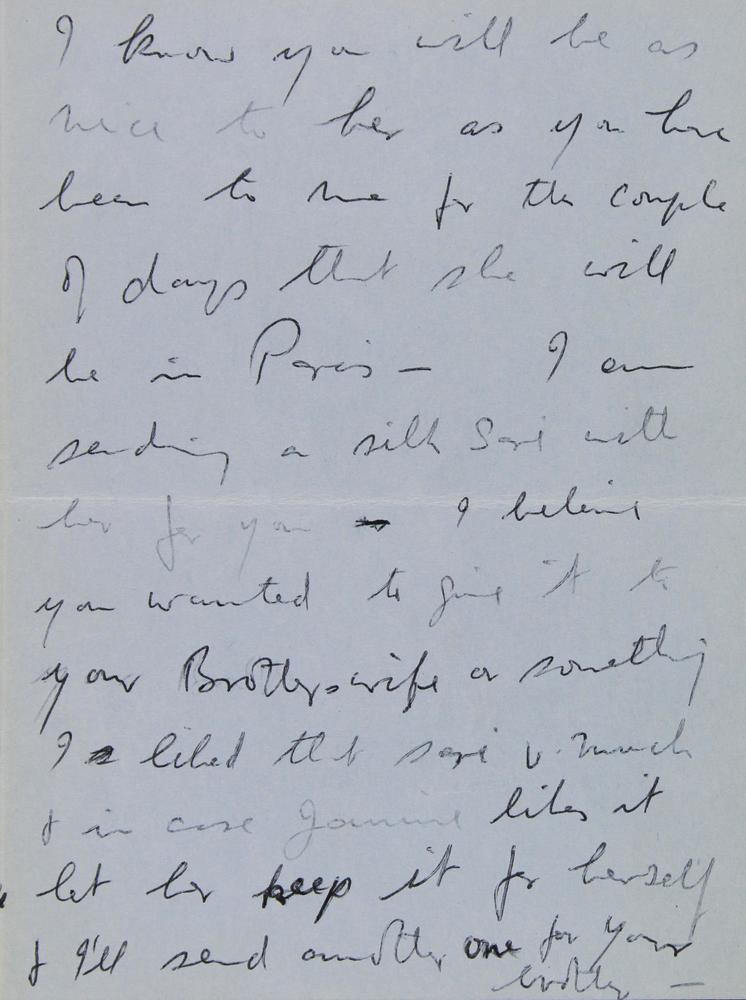 I know you will be as
nice to her as you have
been to me for the couple
of days that she will
be in Paris — I am
sending a silk Sari with
her for you I believe
you wanted to give it to
your Brothers wife or something
I liked that sari v. much
& in case Jannine likes it
let her keep it for herself
& I'll send another one for your
brother —